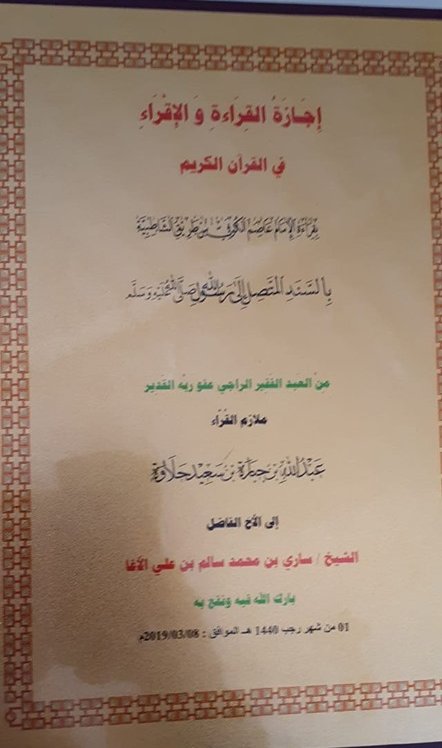 إِجَازَةُ القِرَاءةِ وَ الإِقْرَاءِ
في القرآن الكريم
بِقِرَاءَةِ الإِمَامِ عَاصِمٍ الكُوفِيِّ مِنْ طَرِيقِ الشَّاطِبِيَّةِ
بِالسَّنَدِ المُتَّصِلِ إِلَى رَسُولِ اللهِ صَلَّى اللهُ عَلَيْهِ وَسَلَّمَ
مِنْ العبد الفقير الراجي عفو ربه القدير
ملازم القُرَّاء
عَبْدُ اللهِ بْنُ جَبَارَةَ بْنِ سَعِيد حَلَاوَة
إلى الأخ الفاضل
الشيخ / ساري بن محمد سالم بن علي الأغا
بارك الله فيه ونفع به
01 من شهر رجب 1440 هـ الموافق : 2019/03/08م